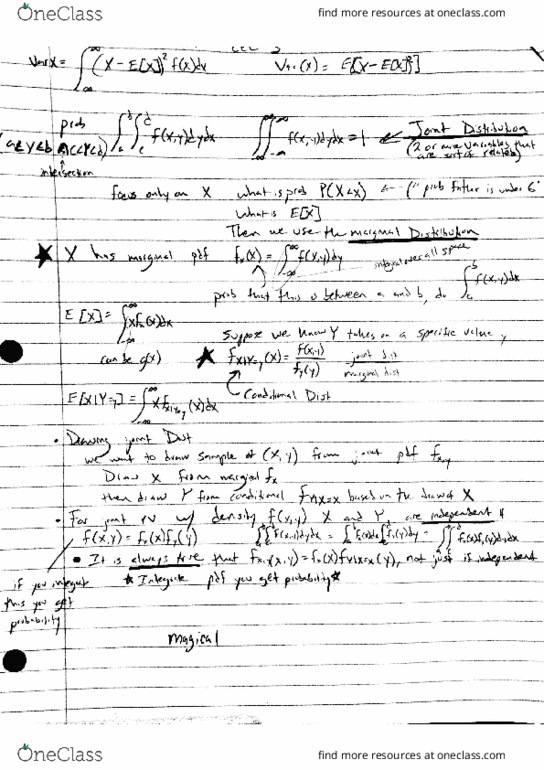 OneClass
find more resources at oneclass.com
Var X = ∫ (X - E[X])² f(x)dx    Var(X) = E[(X - E[X])²]
prob ∫ ∫ f(x,y)dydx    ∫∫ f(x,y)dydx = 1 ← Joint Distribution
(2 or more variables that
are sort of related)
intersection
focus only on X    what is prob P(X<x) ← (" prob father is under 6'
What is E[X]
Then we use the marginal Distribution
★ X has marginal pdf fₓ(x) = ∫ f(x,y)dy
integral over all space
prob that this is between a and b, do ∫ f(x,y)dx
E[X] = ∫ x fₓ(x)dx
can be g(x)
Suppose we know Y takes on a specific value y
★ f X|Y=y (x) = f(x,y) / f y (y)    joint dist / marginal dist
Conditional Dist
E[X|Y=y] = ∫ x f X|Y=y (x)dx
• Drawing joint Dist
we want to draw sample of (X,Y) from joint pdf f x,y
Draw X from marginal fₓ
then draw Y from conditional f Y|X=x based on the draw of X
• For joint RV w/ density f(x,y) X and Y are independent if
f(x,y) = fₓ(x) f y (y)    ∫∫ f(x,y)dydx = ∫ fₓ(x)dx ∫ f y (y)dy = ∫∫ fₓ(x) f y (y)dydx
• It is always true that f x,y (x,y) = fₓ(x) f Y|X=x (y), not just if independent
★ Integrate pdf you get probability ★
if you integrate
this you get
probability
magical
OneClass
find more resources at oneclass.com